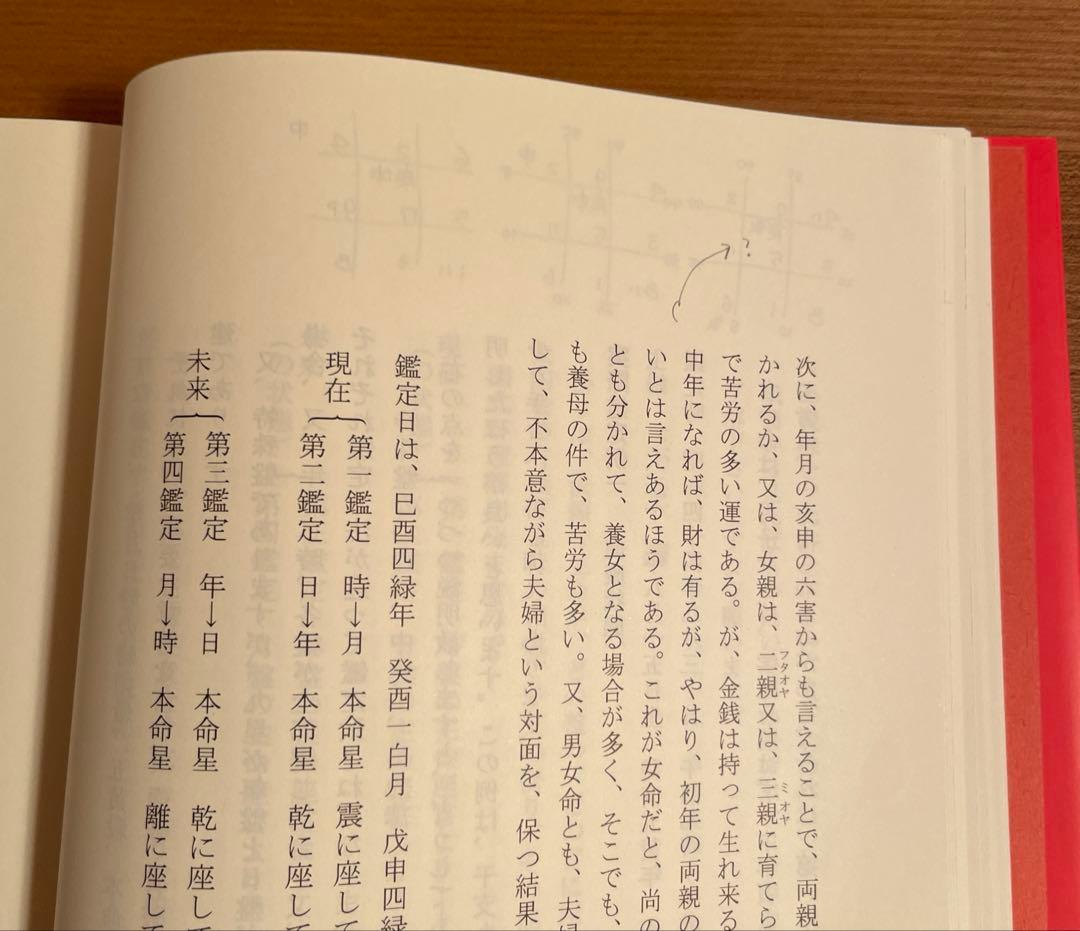 ?
次に、年月の亥申の六害からも言えることで、両親
かれるか、又は、女親は、二親又は、三親に育てら
フタオヤ
ミオヤ
で苦労の多い運である。が、金銭は持って生れ来る
中年になれば、財は有るが、やはり、初年の両親の
いとは言えあるほうである。これが女命だと、尚の
とも分かれて、養女となる場合が多く、そこでも、
も養母の件で、苦労も多い。又、男女命とも、夫婦
して、不本意ながら夫婦という対面を、保つ結果
鑑定日は、巳酉四緑年 癸酉一白月 戊申四緑
現在
第一鑑定 時→月 本命星 震に座して
第二鑑定 日→年 本命星 乾に座して
未来
第三鑑定 年→日 本命星 乾に座して
第四鑑定 月→時 本命星 離に座して